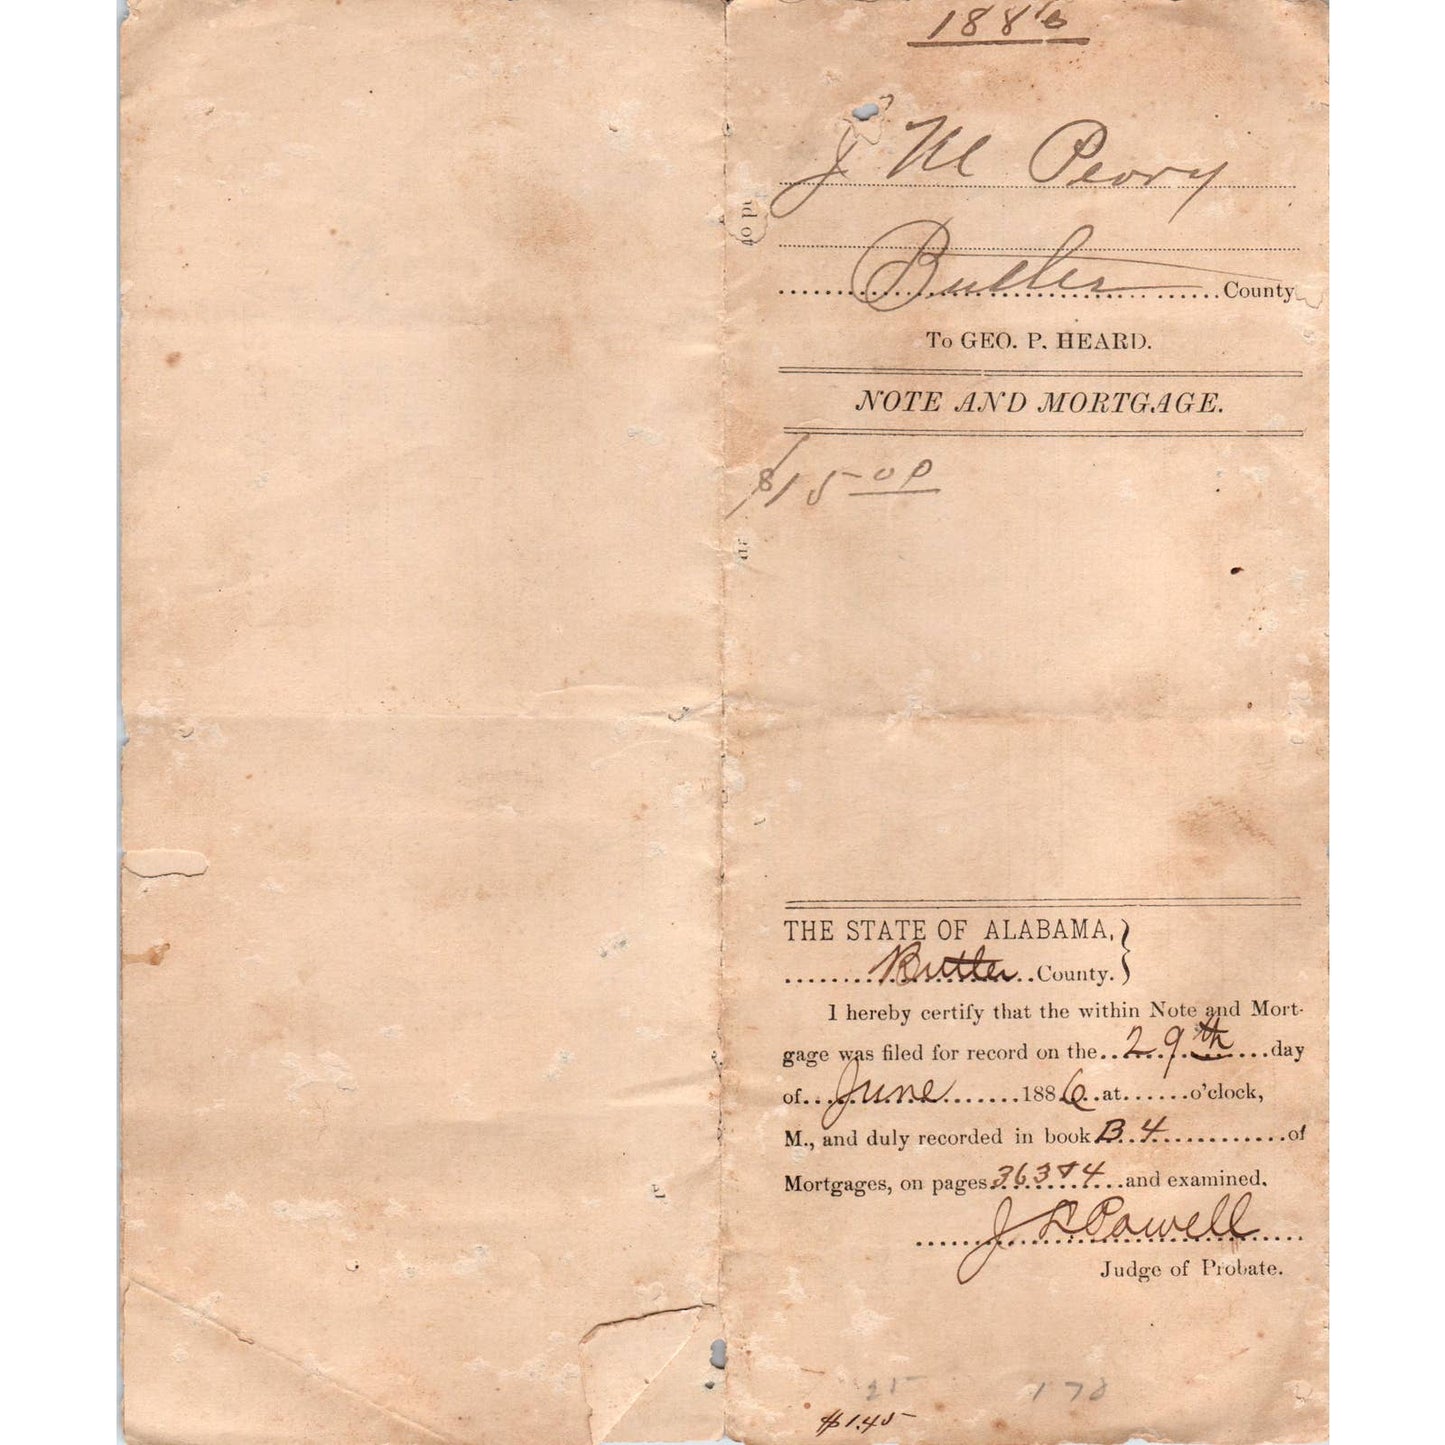 1886
J M Peory
Butler County
To GEO. P. HEARD.
NOTE AND MORTGAGE.
$15 00
THE STATE OF ALABAMA,
Butler County.
I hereby certify that the within Note and Mort-
gage was filed for record on the 29th day
of June 1886 at o'clock,
M., and duly recorded in book B 4 of
Mortgages, on pages 363 & 4 and examined.
J L Powell
Judge of Probate.
25 178
$1.45